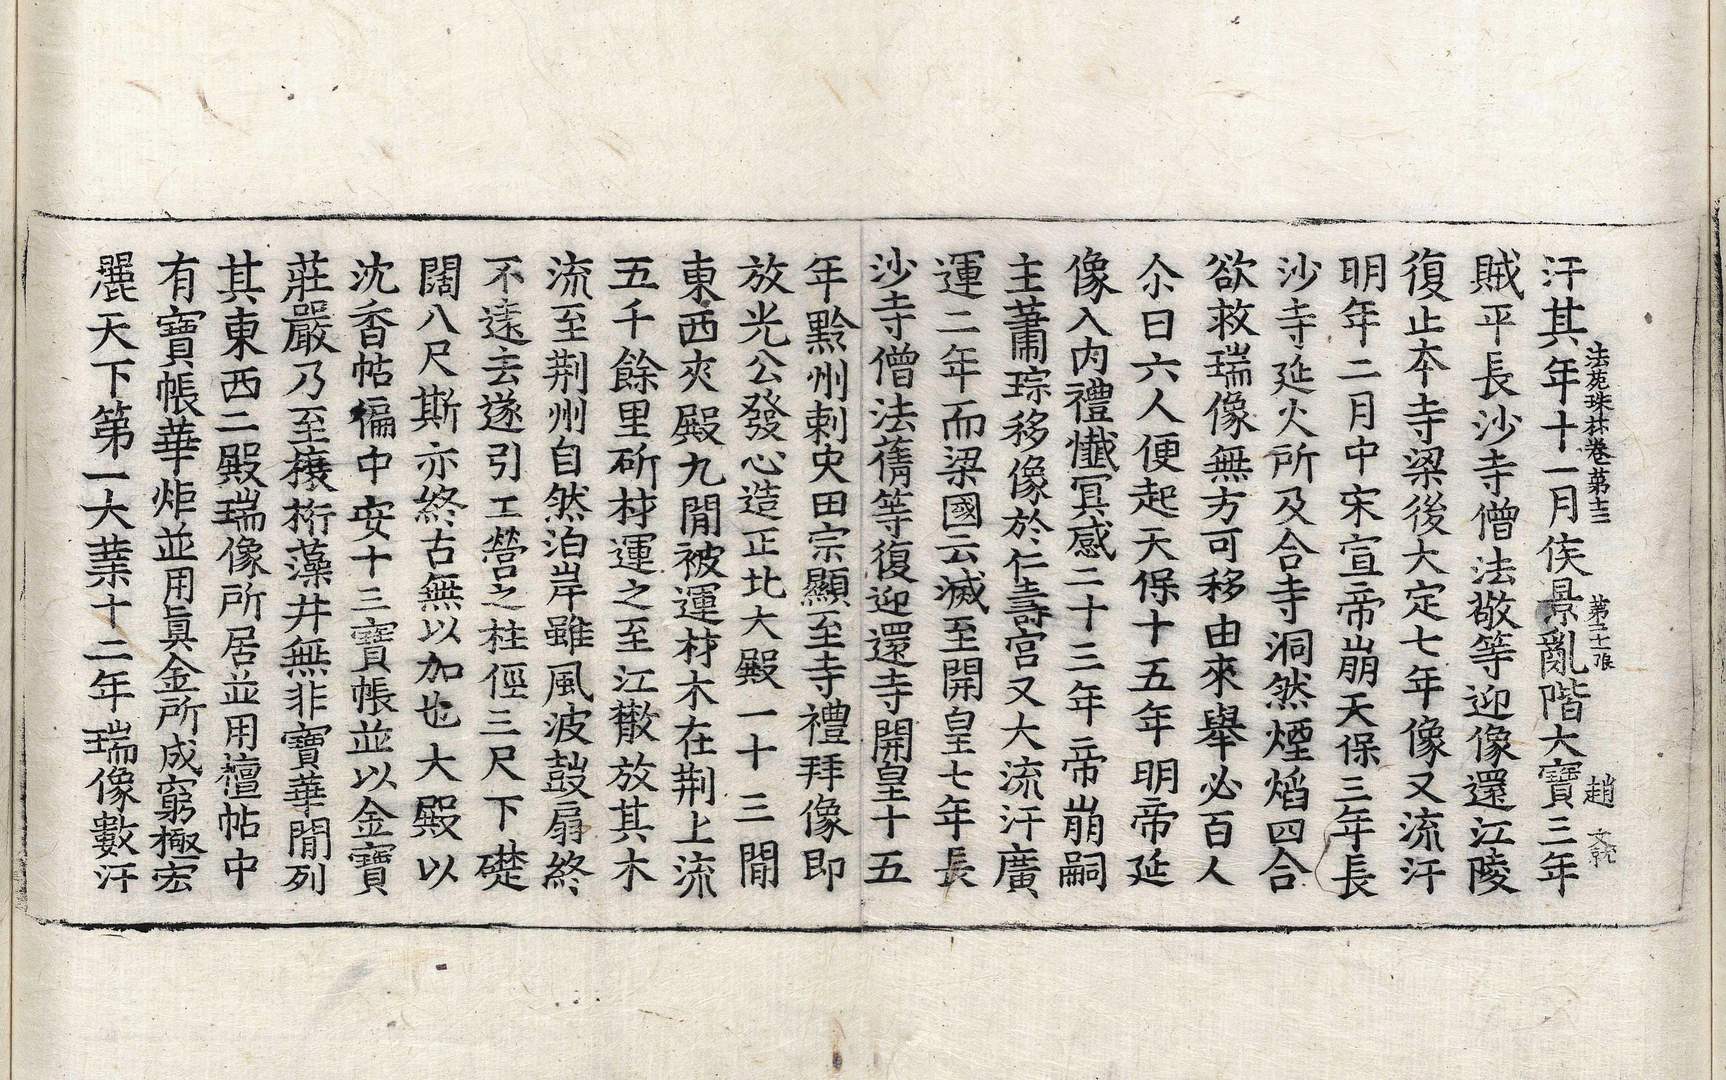 法苑珠林卷第十三 第二十張 趙文統
汗其年十一月侯景亂階大寶三年
賊平長沙寺僧法敬等迎像還江陵
復止本寺梁後大定七年像又流汗
明年二月中宋宣帝崩天保三年長
沙寺延火所及合寺洞然煙焰四合
欲救瑞像無方可移由來舉必百人
尒日六人便起天保十五年明帝延
像入內禮懺冥感二十三年帝崩嗣
主蕭琮移像於仁壽宮又大流汗廣
運二年而梁國云滅至開皇七年長
沙寺僧法籌等復迎還寺開皇十五
年黔州刺史田宗顯至寺禮拜像即
放光公發心造正北大殿一十三間
東西夾殿九間被運材木在荆上流
五千餘里斫材運之至江散放其木
流至荆州自然泊岸雖風波鼓扇終
不遠去遂引工營之柱徑三尺下礎
闊八尺斯亦終古無以加也大殿以
沈香帖徧中安十三寶帳並以金寶
莊嚴乃至榱桁藻井無非寶華間列
其東西二殿瑞像所居並用檀帖中
有寶帳華炬並用真金所成窮極宏
麗天下第一大業十二年瑞像數汗